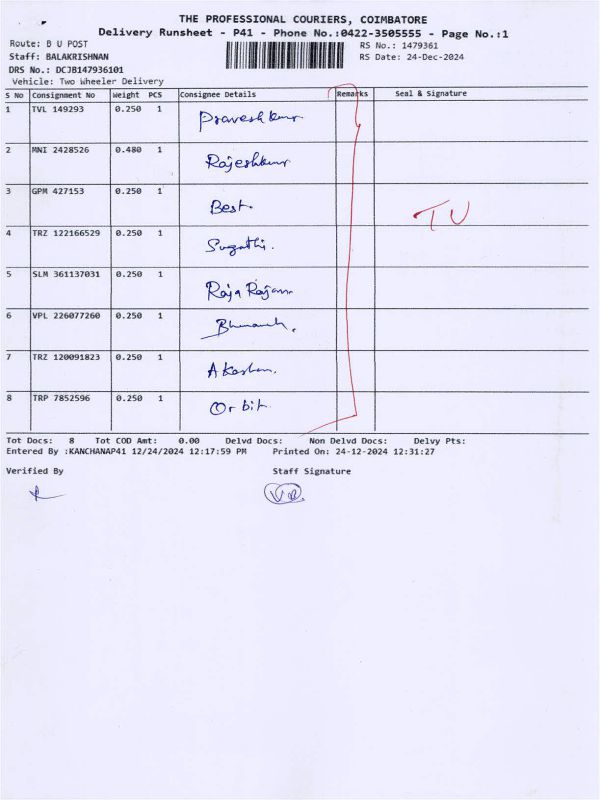 THE PROFESSIONAL COURIERS, COIMBATORE
Delivery Runsheet - P41 - Phone No.:0422-3505555 - Page No.:1
Route: B U POST
RS No.: 1479361
Staff: BALAKRISHNAN
RS Date: 24-Dec-2024
DRS No.: DCJB147936101
Vehicle: Two Wheeler Delivery
S No Consignment No Weight PCS Consignee Details Remarks Seal & Signature
1 TVL 149293 0.250 1 Pravesh kumr
2 MNI 2428526 0.480 1 Rajeshkumr
3 GPM 427153 0.250 1 Best.
TU
4 TRZ 122166529 0.250 1 Sugathi.
5 SLM 361137031 0.250 1 Raja Rajann
6 VPL 226077260 0.250 1
7 TRZ 120091823 0.250 1 Akashn.
8 TRP 7852596 0.250 1 Orbit.
Tot Docs: 8 Tot COD Amt: 0.00 Delvd Docs: Non Delvd Docs: Delvy Pts:
Entered By :KANCHANAP41 12/24/2024 12:17:59 PM Printed On: 24-12-2024 12:31:27
Verified By Staff Signature